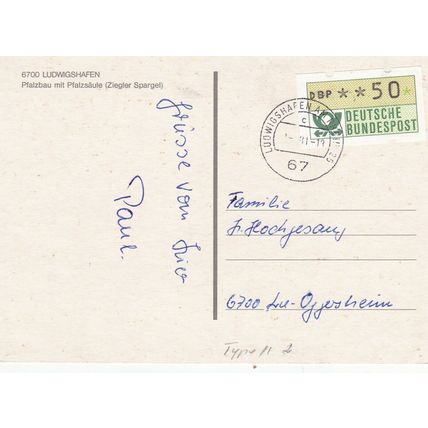 6700 LUDWIGSHAFEN
Pfalzbau mit Pfalzsäule (Ziegler Spargel)
Grüsse vom Trier
Paul.
DBP **50*
DEUTSCHE
BUNDESPOST
LUDWIGSHAFEN AM
c
67
Familie
H. Hochgesang
6700 Lu-Oggersheim
Type